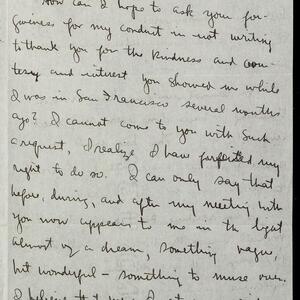 How can I hope to ask your for-
giveness for my conduct in not writing
to thank you for the kindness and cour-
tesy and interest you showed me while
I was in San Francisco several months
ago? I cannot come to you with such
a request, I realize I have forfeited my
right to do so. I can only say that
before, during, and after my meeting with
you now appears to me in the light
almost of a dream, something vague,
but wonderful – something to muse over.
I believe that